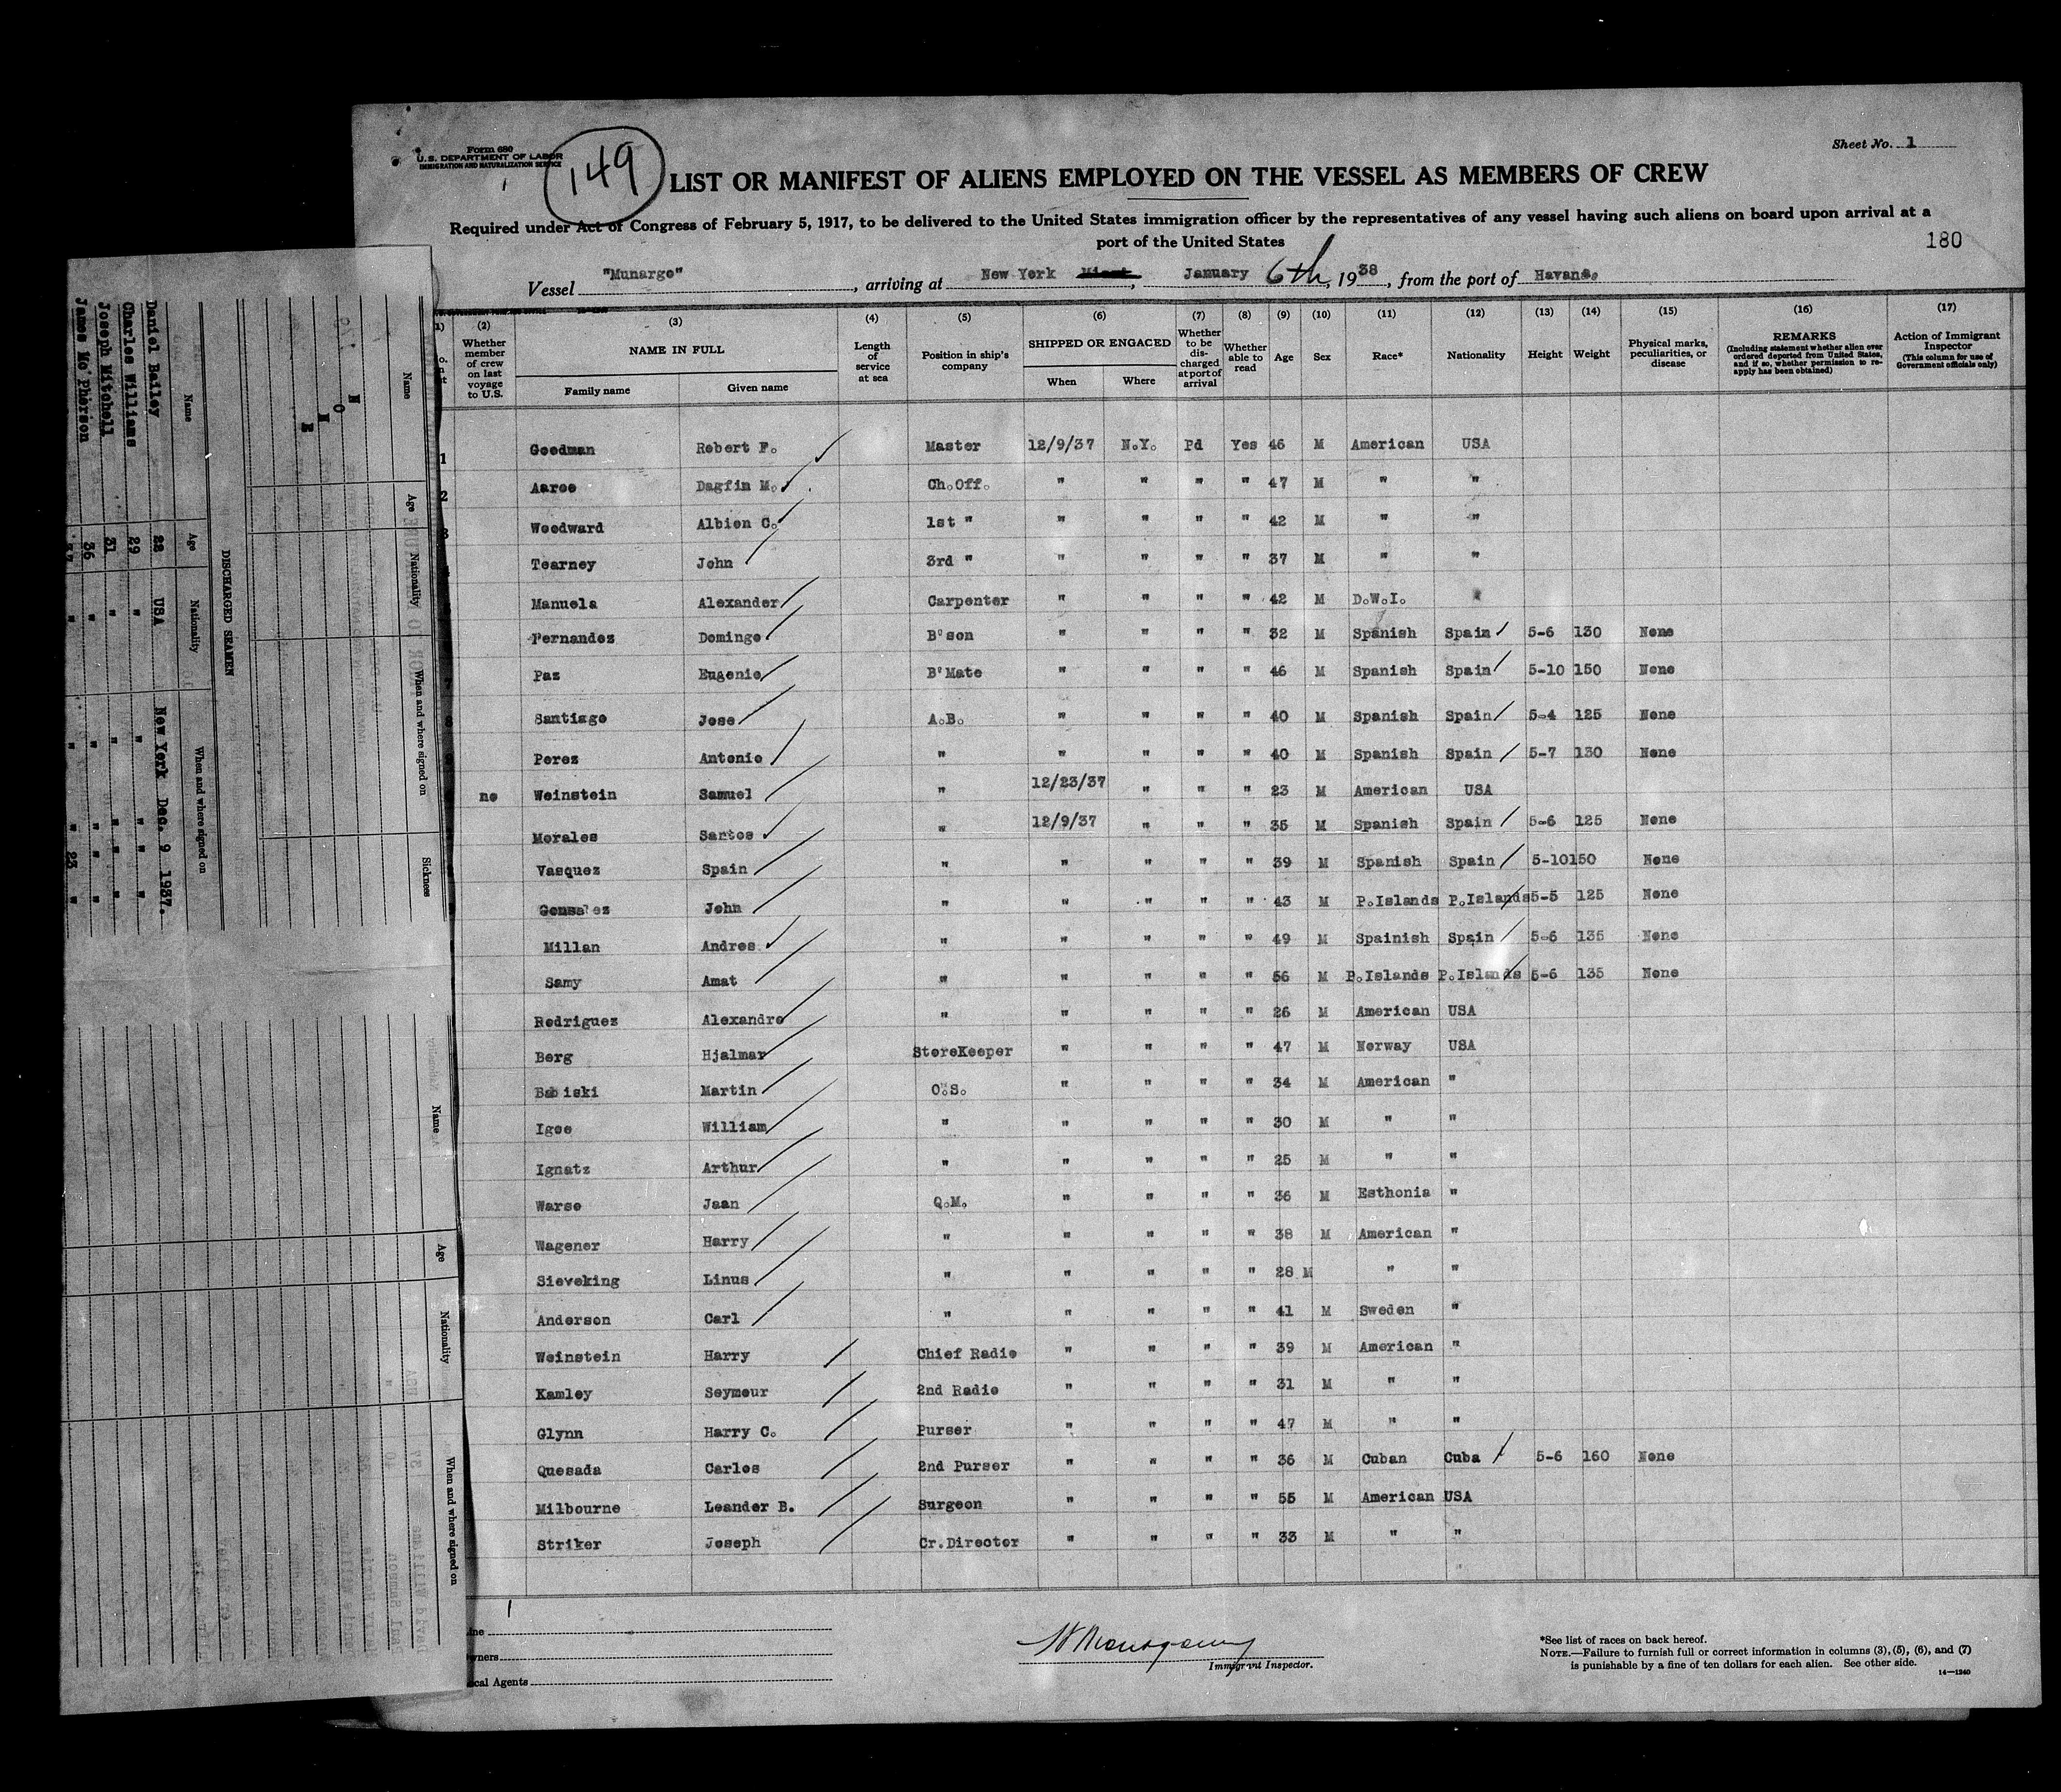 Form 680
U.S. DEPARTMENT OF LABOR
IMMIGRATION AND NATURALIZATION SERVICE
149
Sheet No. 1
LIST OR MANIFEST OF ALIENS EMPLOYED ON THE VESSEL AS MEMBERS OF CREW
Required under Act of Congress of February 5, 1917, to be delivered to the United States immigration officer by the representatives of any vessel having such aliens on board upon arrival at a
port of the United States
180
Vessel "Munargo", arriving at New York, January 6th, 1938, from the port of Havana.
(2) (3) (4) (5) (6) (7) (8) (9) (10) (11) (12) (13) (14) (15) (16) (17)
Whether member of crew on last voyage to U.S.
NAME IN FULL
Family name
Given name
Length of service at sea
Position in ship's company
SHIPPED OR ENGAGED
When
Where
Whether to be discharged at port of arrival
Whether able to read
Age
Sex
Race*
Nationality
Height
Weight
Physical marks, peculiarities, or disease
REMARKS
(Including statement whether alien ever ordered deported from United States, and if so, whether permission to reapply has been obtained)
Action of Immigrant Inspector
(This column for use of Government officials only)
1 Goodman Robert F. Master 12/9/37 N.Y. Pd Yes 46 M American USA
2 Aaroe Dagfin M. Ch.Off. " " " " 47 M " "
3 Woodward Albion C. 1st " " " " " 42 M " "
Tearney John 3rd " " " " " 37 M " "
Manuela Alexander Carpenter " " " " 42 M D.W.I. "
Fernandez Domingo B'son " " " " 32 M Spanish Spain 5-6 130 None
7 Paz Eugenio B'Mate " " " " 46 M Spanish Spain 5-10 150 None
8 Santiago Jose A.B. " " " " 40 M Spanish Spain 5-4 125 None
Perez Antonio " " " " " 40 M Spanish Spain 5-7 130 None
no Weinstein Samuel " 12/23/37 " " " 23 M American USA
Morales Santos " 12/9/37 " " " 35 M Spanish Spain 5-6 125 None
Vasquez Spain " " " " " 39 M Spanish Spain 5-10 150 None
Gonsalez John " " " " " 43 M P.Islands P.Islands 5-5 125 None
Millan Andres " " " " " 49 M Spainish Spain 5-6 135 None
Samy Amat " " " " " 56 M P.Islands P.Islands 5-6 135 None
Rodriguez Alexandro " " " " " 26 M American USA
Berg Hjalmar StoreKeeper " " " " 47 M Norway USA
Babiski Martin O.S. " " " " 34 M American "
Igoe William " " " " " 30 M " "
Ignatz Arthur " " " " " 25 M " "
Warse Jaan Q.M. " " " " 36 M Esthonia "
Wagener Harry " " " " " 38 M American "
Sieveking Linus " " " " " 28 M " "
Anderson Carl " " " " " 41 M Sweden "
Weinstein Harry Chief Radio " " " " 39 M American "
Kamley Seymour 2nd Radio " " " " 31 M " "
Glynn Harry C. Purser " " " " 47 M " "
Quesada Carlos 2nd Purser " " " " 36 M Cuban Cuba 5-6 160 None
Milbourne Leander B. Surgeon " " " " 55 M American USA
Striker Joseph Cr.Director " " " " 33 M " "
Owners
Local Agents
Immigrant Inspector.
*See list of races on back hereof.
NOTE.—Failure to furnish full or correct information in columns (3), (5), (6), and (7)
is punishable by a fine of ten dollars for each alien. See other side.
14—1240
Name Age Nationality When and where signed on Sickness
N O N E
DISCHARGED SEAMEN
Name Age Nationality When and where signed on
Daniel Bailey 22 USA New York Dec. 9 1937.
Charles Williams 29 " " " "
Joseph Mitchell 31 " " " "
James Mc'Pherson 36 " " " "
" " " 23 "
Name Age Nationality When and where signed on